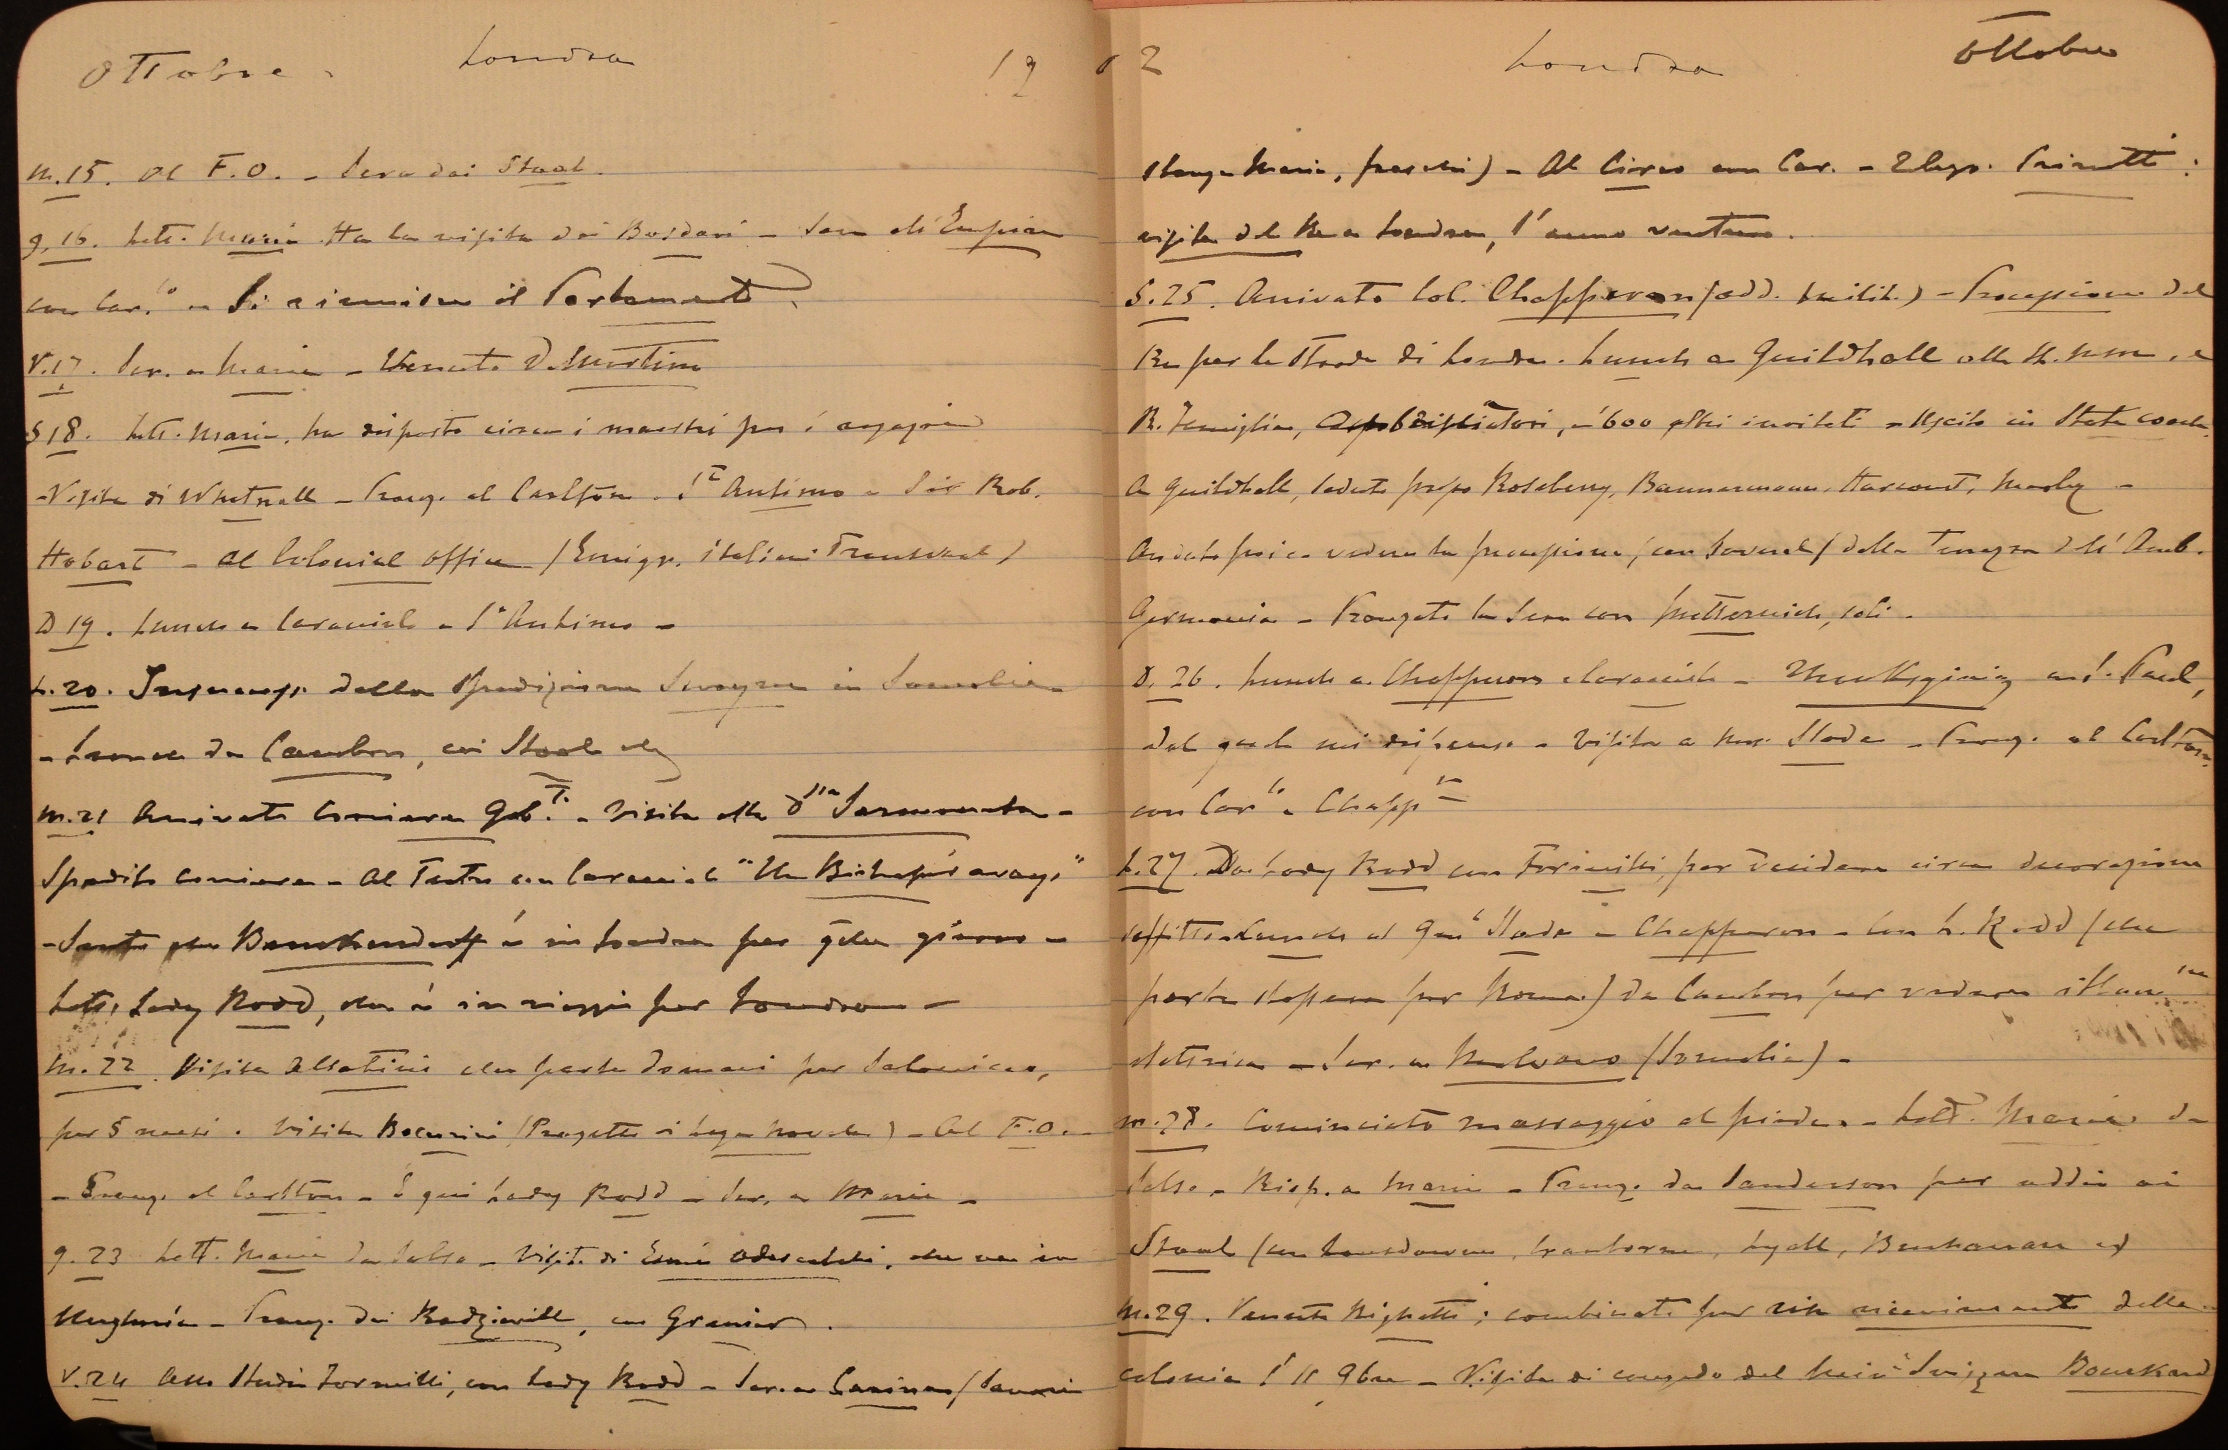 Ottobre. Londra 19
M. 15. Al F.O. - Sera dai Staal.
g. 16. Lett. Maria. Ha la visita dei Bosdari - Sera all'Empire
con Car.lo - Si è riunito il Parlamento
V. 17. Scr. a Maria - Venuto De Martino
S 18. Lett. Maria, ha risposto circa i maestri per i ragazzi
- Visita di Whitnall - Pranz. al Carlton. S.t Antimo e Sir Rob.
Hobart - Al Colonial Office (Emigr. italiani Transvaal)
D 19. Lunch a Caracciolo e S.t Antimo -
L. 20. della spedizione Swayne in Somalia
- Lunch da Cambon, coi Staal
M. 21 Arrivato Corriere Gab.to - Visita alla D.ssa Sermoneta -
Spedito corriere - Al Teatro con Caracciolo "The Bishop's move"
- che Benckendorff è in Londra per qche giorno -
Lett. Lady Rodd, che è in viaggio per Londra -
M. 22. Visita Allatini che parte domani per Salonicco,
per 5 mesi. Visita Bocurini (Progetto di Lega navale) - Al F.O. -
- Pranz. al Carlton - È qui Lady Rodd - Scr. a Maria -
g. 23 Lett. Maria da Salso - Visita di Esmé Odescalchi, che va in
Ungheria - Pranz. dai Radziwill, con Granier.
V. 24 Allo Studio Formilli, con Lady Rodd - Scr. a
02 Londra Ottobre
Maria, ) - Al Circo con Car. - Telegr. Prinetti:
visita del Re a Londra, l'anno venturo.
S. 25. Arrivato Col. Chapperon (add. milit.) - Processione del
Re per le strade di Londra. Lunch a Guildhall alle LL. MM. e
R. Famiglia, Ambasciatori, e 600 altri invitati - Uscito in State coach.
A Guildhall, seduto presso Rosebery, Bannermann, Harcourt, Morley -
Andato poi a vedere la processione (con Soveral) dalla Terrazza dell'Amb.
Germania - Pranzato la sera con Metternich, soli -
D. 26. Lunch a Chapperon e Caracciolo - Thanksgiving a S. Paul,
dal quale mi dispenso - Visita a Mrs. Slade - Pranz. al Carlton,
con Car.lo e Chapp.n
L. 27. Da Lady Rodd con Formilli, per decidere circa decorazione
soffitto. Lunch al Gen.l Slade e Chapperon - Con L. Rodd (che
parte stasera per Roma) da Cambon per vedere illum.ne
elettrica - Scr. a Malvano (Somalia) -
M. 28. Cominciato massaggio al piede. - Lett. Maria da
Salso - Risp. a Maria - Pranz. da Sanderson per addio ai
Staal (con Lansdowne, Cranborne, Lyall, Buchanan ed
M. 29. Venuto Righetti; combinato per ricevimento della
colonia l'11 9bre - Visita di congedo del Min.o Svizzero Bourkard